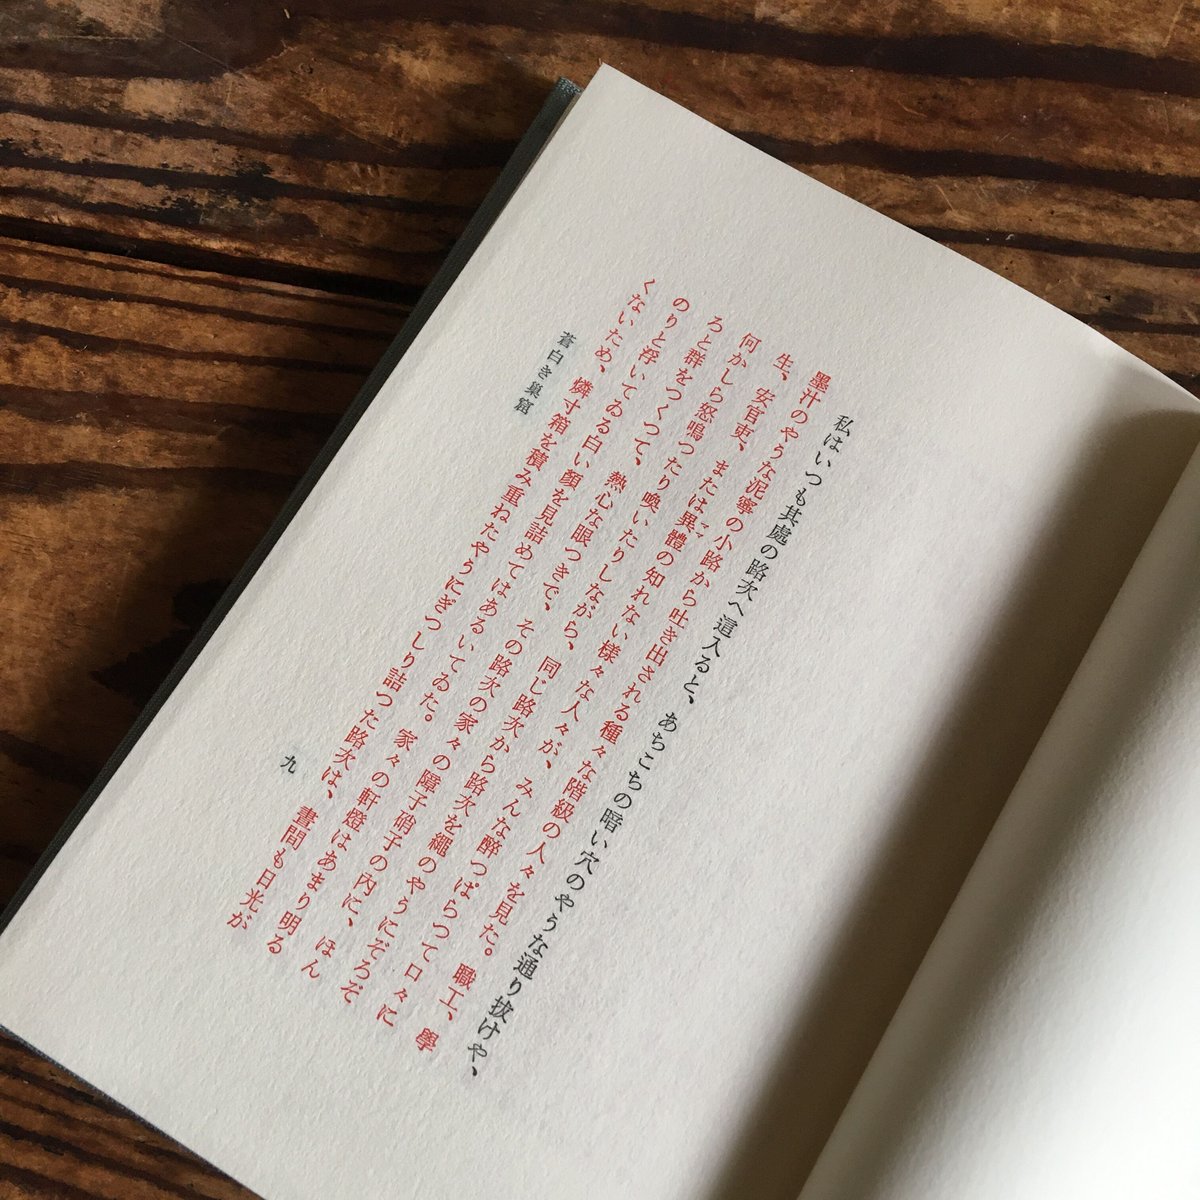 私はいつも其處の路次へ這入ると、あちこちの暗い穴のやうな通り抜けや、
墨汁のやうな泥寧の小路から吐き出される種々な階級の人々を見た。職工、學
生、安官吏、または異體の知れない樣々な人々が、みんな醉つぱらつて口々に
何かしら怒鳴つたり喚いたりしながら、同じ路次から路次を繩のやうにぞろぞ
ろと群をつくつて、熱心な眼つきで、その路次の家々の障子硝子の內に、ほん
のりと浮いてゐる白い顏を見詰めてはあるいてゐた。家々の軒燈はあまり明る
くないため、燐寸箱を積み重ねたやうにぎつしり詰つた路次は、晝間も日光が
ママ
蒼白き巢窟
九